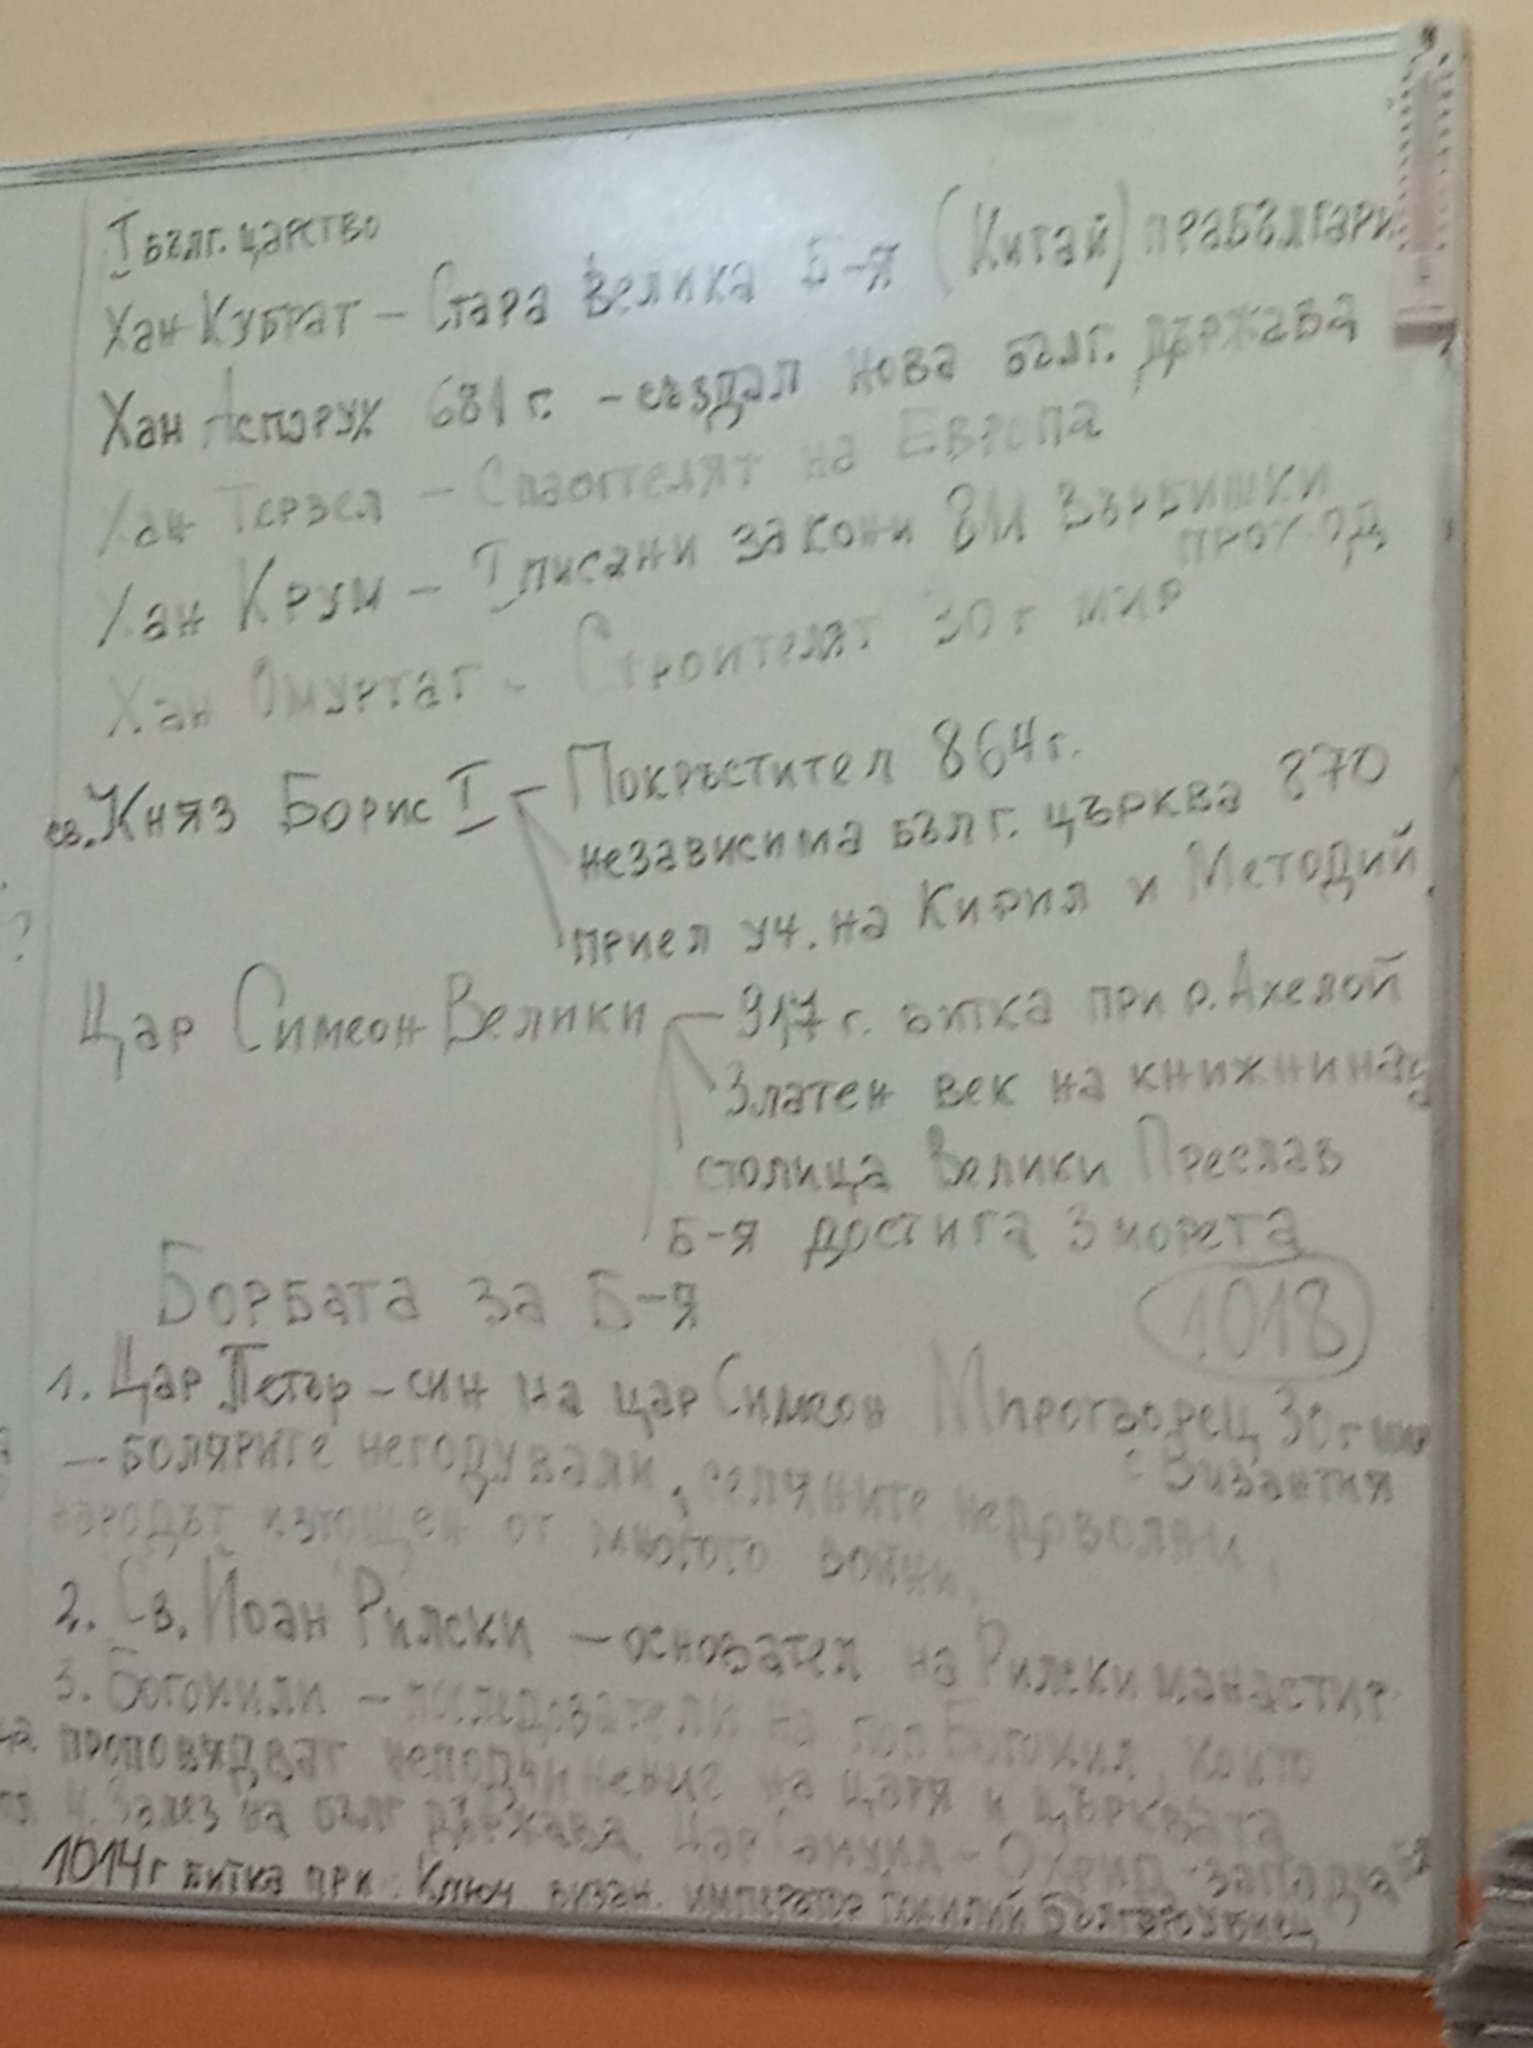 I бълг. царство
Хан Кубрат - Стара Велика Б-я (Китай) прабългари
Хан Аспарух 681 г. - създал нова бълг. държава
Хан Тервел - Спасителят на Европа
Хан Крум - I писани закони 811 Върбишки
проход
Хан Омуртаг - Строителят 30 г мир
св. Княз Борис I - Покръстител 864 г.
независима бълг. църква 870
приел уч. на Кирил и Методий
?
Цар Симеон Велики - 917 г. битка при р. Ахелой
Златен век на книжнина
столица Велики Преслав
Б-я достига 3 морета
Борбата за Б-я
1018
1. Цар Петър - син на цар Симеон Миротворец 30 г мир
с Византия
- болярите негодували, селяните недоволни,
народът изтощен от многото войни.
2. Св. Йоан Рилски - основател на Рилски манастир
3. Богомили - последователи на поп Богомил, които
проповядват неподчинение на царя и църквата
4. Залез на бълг държава Цар Самуил - Охрид - запад
1014 г битка при Ключ визан. император Василий Българоубиец